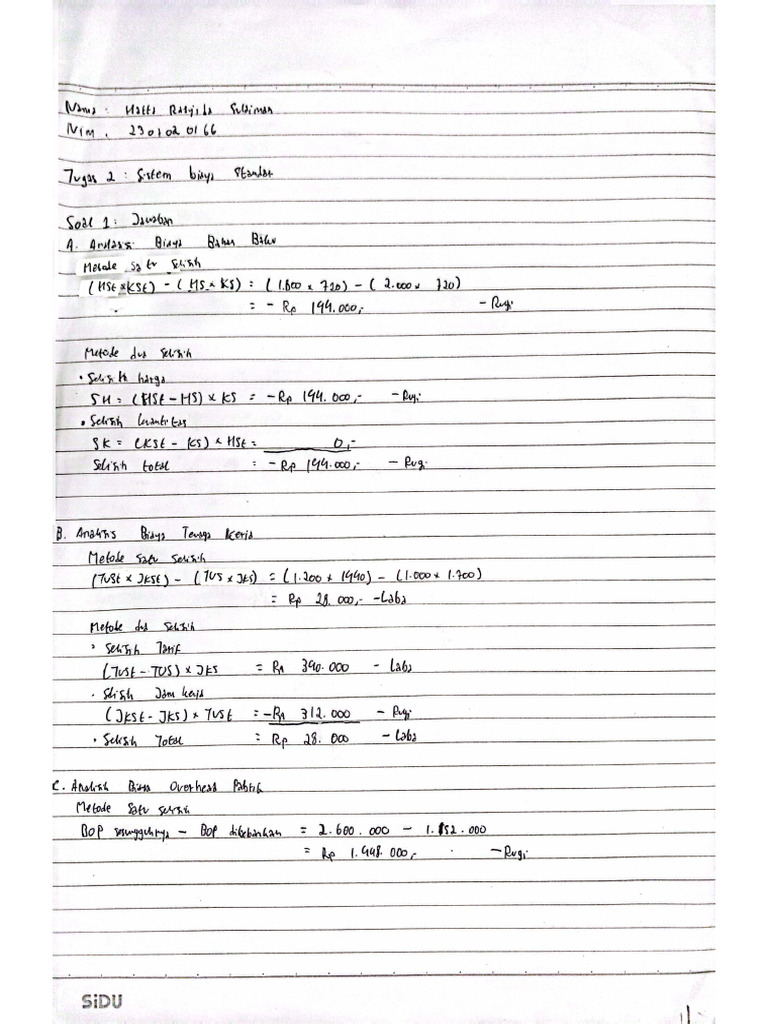 Nama : Hatta Radjida Sulaiman
NIM . 2301020166
Tugas 2 : Sistem biaya Standar
Soal 1 : Jawaban
A. Analisis Biaya Bahan Baku
Metode satu selisih
(HSt x KSt) - (HS x KS) = (1.800 x 720) - (2.000 x 720)
= - Rp 144.000,- - Rugi
Metode dua selisih
• Selisih harga
SH = (HSt - HS) x KS = - Rp 144.000,- - Rugi
• Selisih kuantitas
SK = (KSt - KS) x HSt = 0,-
Selisih total = - Rp 144.000,- - Rugi
B. Analisis Biaya Tenaga Kerja
Metode satu selisih
(TUSt x JKSt) - (TUS x JKS) = (1.200 x 1440) - (1.000 x 1.700)
= Rp 28.000,- - Laba
Metode dua selisih
• Selisih Tarif
(TUSt - TUS) x JKS = Rp 340.000 - Laba
• Slisih Jam kerja
(JKSt - JKS) x TUSt = - Rp 312.000 - Rugi
• Selisih Total = Rp 28.000 - Laba
C. Analisis Biaya Overhead Pabrik
Metode Satu selisih
BOP sesungguhnya - BOP dibebankan = 2.600.000 - 1.152.000
= Rp 1.448.000,- - Rugi
SiDU